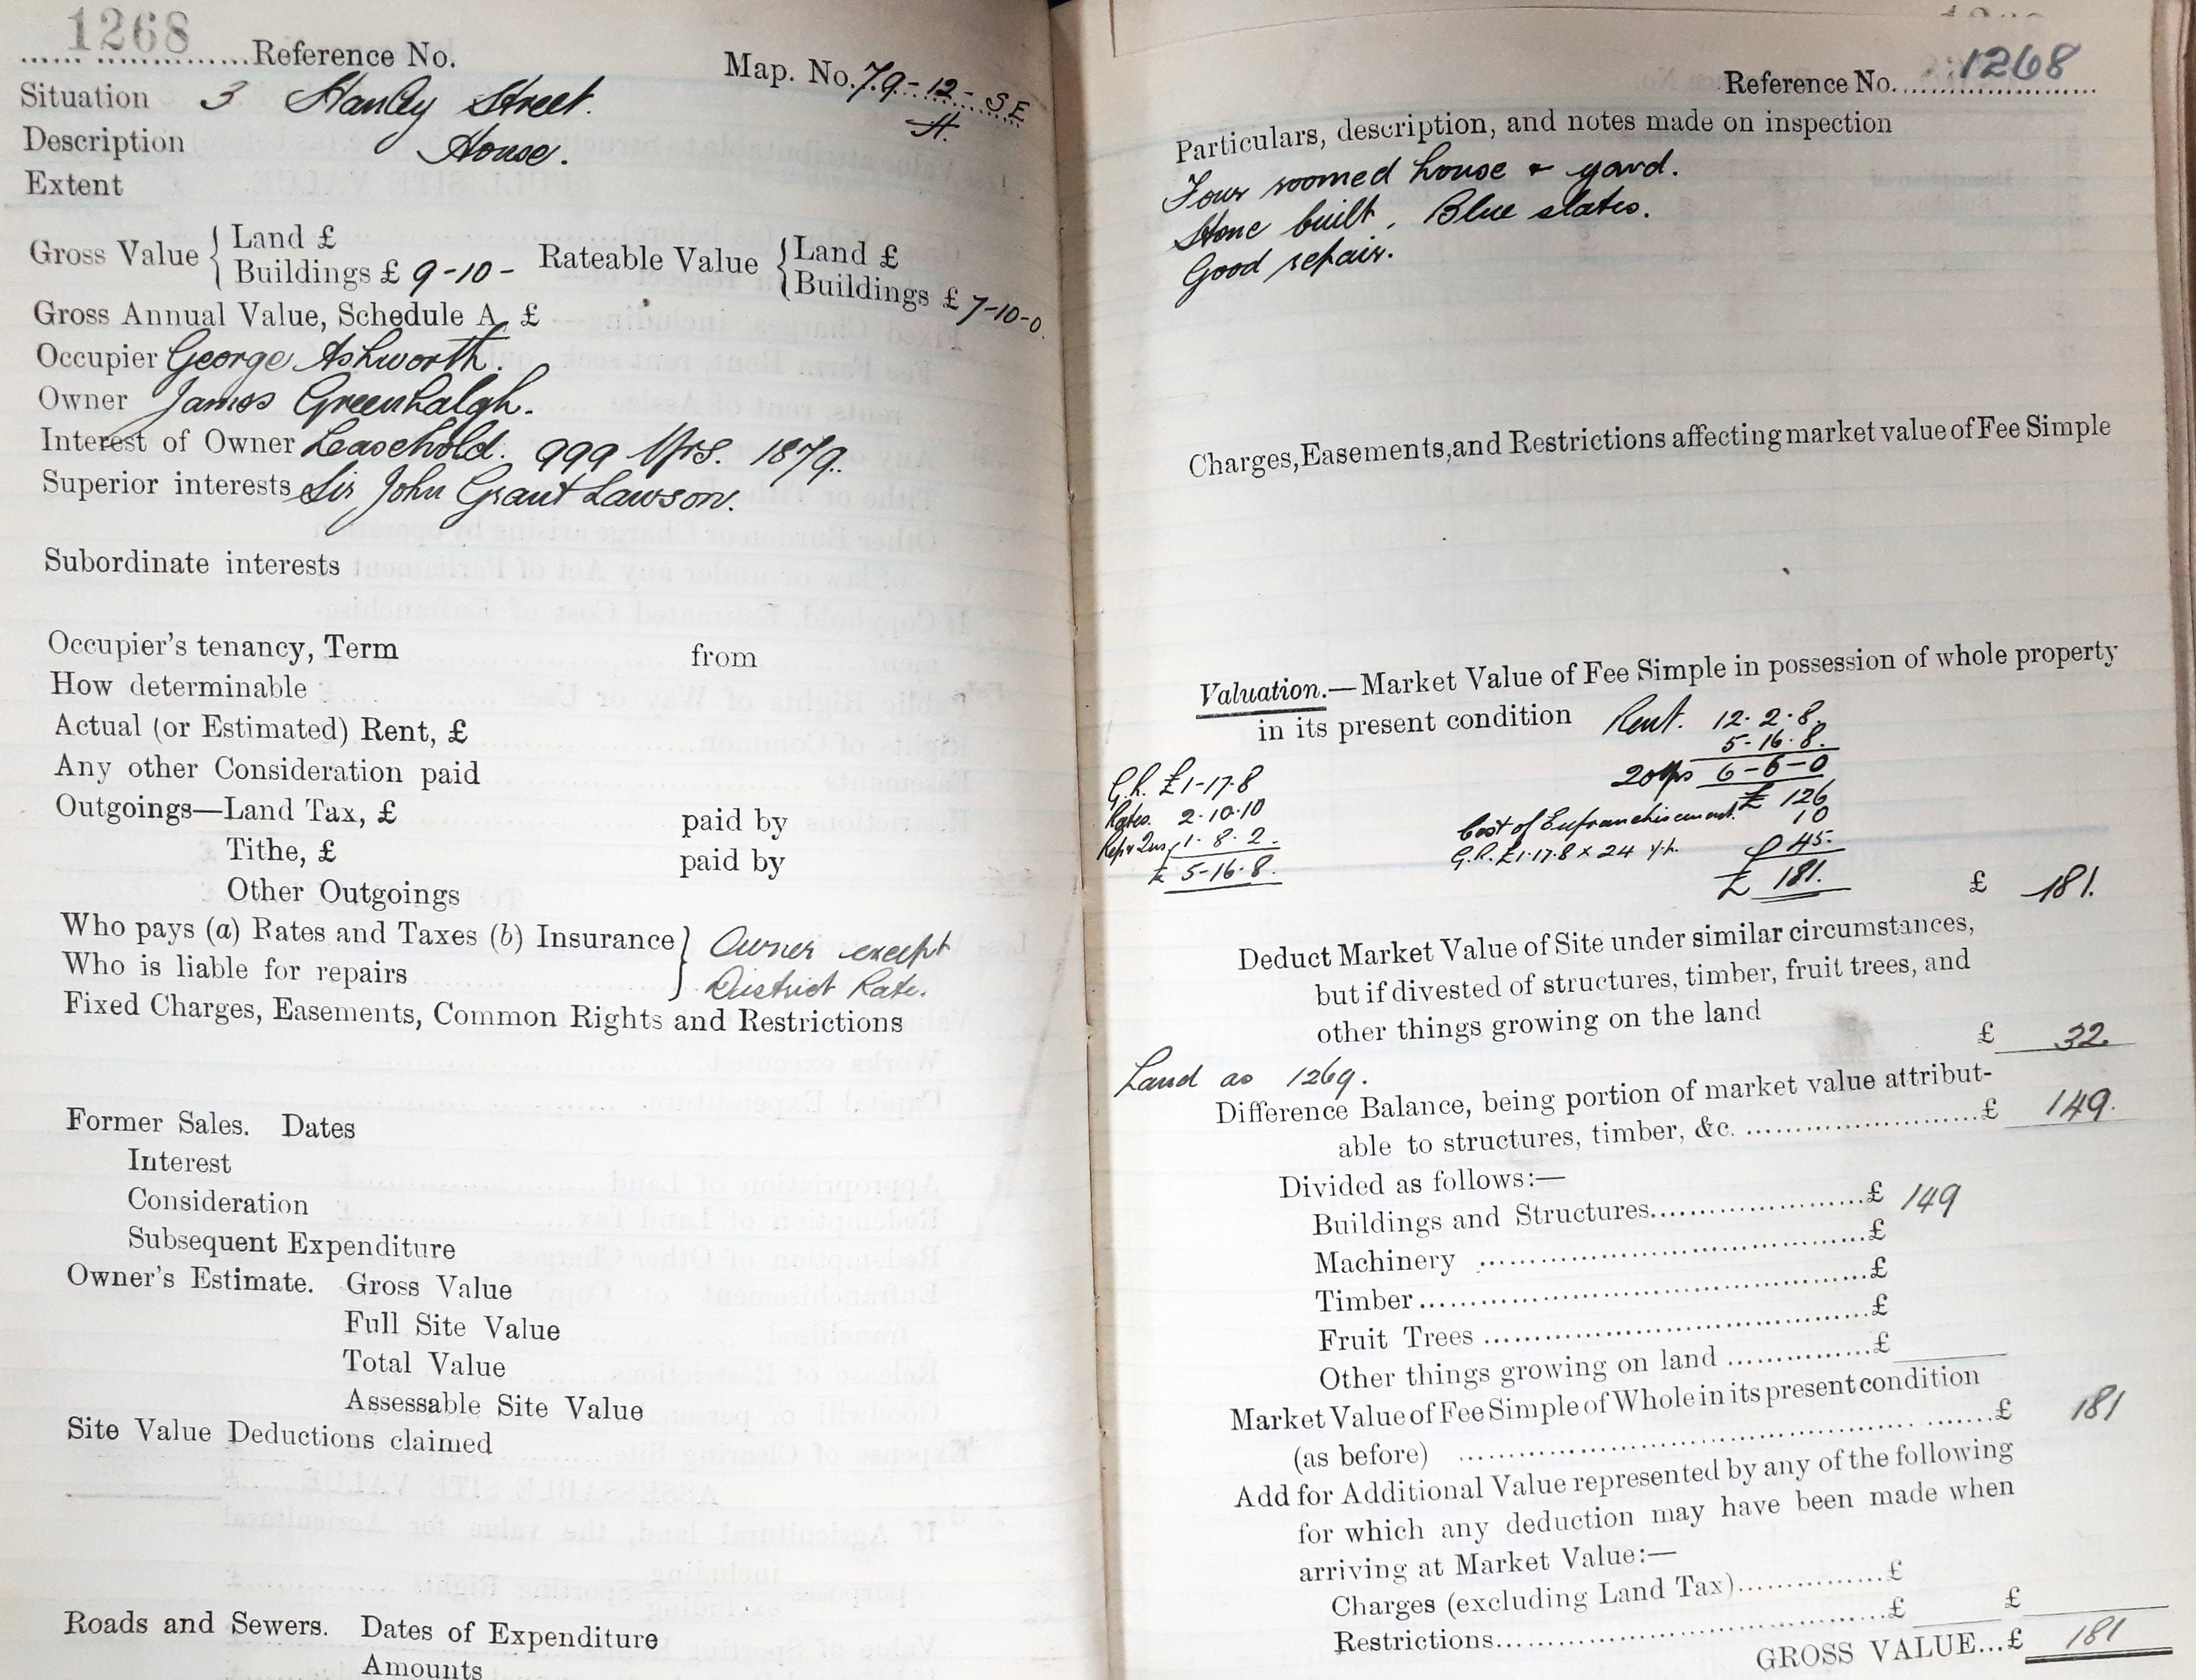 1268 Reference No. Map. No. 79-12-SE
Situation 3 Stanley Street. H.
Description House.
Extent
Gross Value { Land £ Rateable Value { Land £
Buildings £ 9-10- Buildings £ 7-10-0.
Gross Annual Value, Schedule A, £
Occupier George Ashworth.
Owner James Greenhalgh.
Interest of Owner Leasehold. 999 Yrs. 1879.
Superior interests Sir John Grant Lawson.
Subordinate interests
Occupier's tenancy, Term from
How determinable
Actual (or Estimated) Rent, £
Any other Consideration paid
Outgoings—Land Tax, £ paid by
Tithe, £ paid by
Other Outgoings
Who pays (a) Rates and Taxes (b) Insurance } Owner except
Who is liable for repairs District Rate.
Fixed Charges, Easements, Common Rights and Restrictions
Former Sales. Dates
Interest
Consideration
Subsequent Expenditure
Owner's Estimate. Gross Value
Full Site Value
Total Value
Assessable Site Value
Site Value Deductions claimed
Roads and Sewers. Dates of Expenditure
Amounts
Reference No. 1268
Particulars, description, and notes made on inspection
Four roomed house & yard.
Stone built, Blue slates.
Good repair.
Charges, Easements, and Restrictions affecting market value of Fee Simple
Valuation.—Market Value of Fee Simple in possession of whole property
in its present condition Rent. 12.2.8.
5-16.8.
G.R. £1-17-8 20 Yrs 6-6-0
Rates. 2.10.10 £ 126
Rep & Ins. 1.8.2. Cost of Enfranchisement. 10
£ 5-16.8. G.R. £1.17.8 x 24 Y.P. 45.
£ 181. £ 181.
Deduct Market Value of Site under similar circumstances,
but if divested of structures, timber, fruit trees, and
other things growing on the land £ 32.
Land as 1269.
Difference Balance, being portion of market value attribut-
able to structures, timber, &c. £ 149.
Divided as follows:—
Buildings and Structures £ 149
Machinery £
Timber £
Fruit Trees £
Other things growing on land £
Market Value of Fee Simple of Whole in its present condition
(as before) £ 181
Add for Additional Value represented by any of the following
for which any deduction may have been made when
arriving at Market Value:—
Charges (excluding Land Tax) £
Restrictions £ £
GROSS VALUE...£ 181